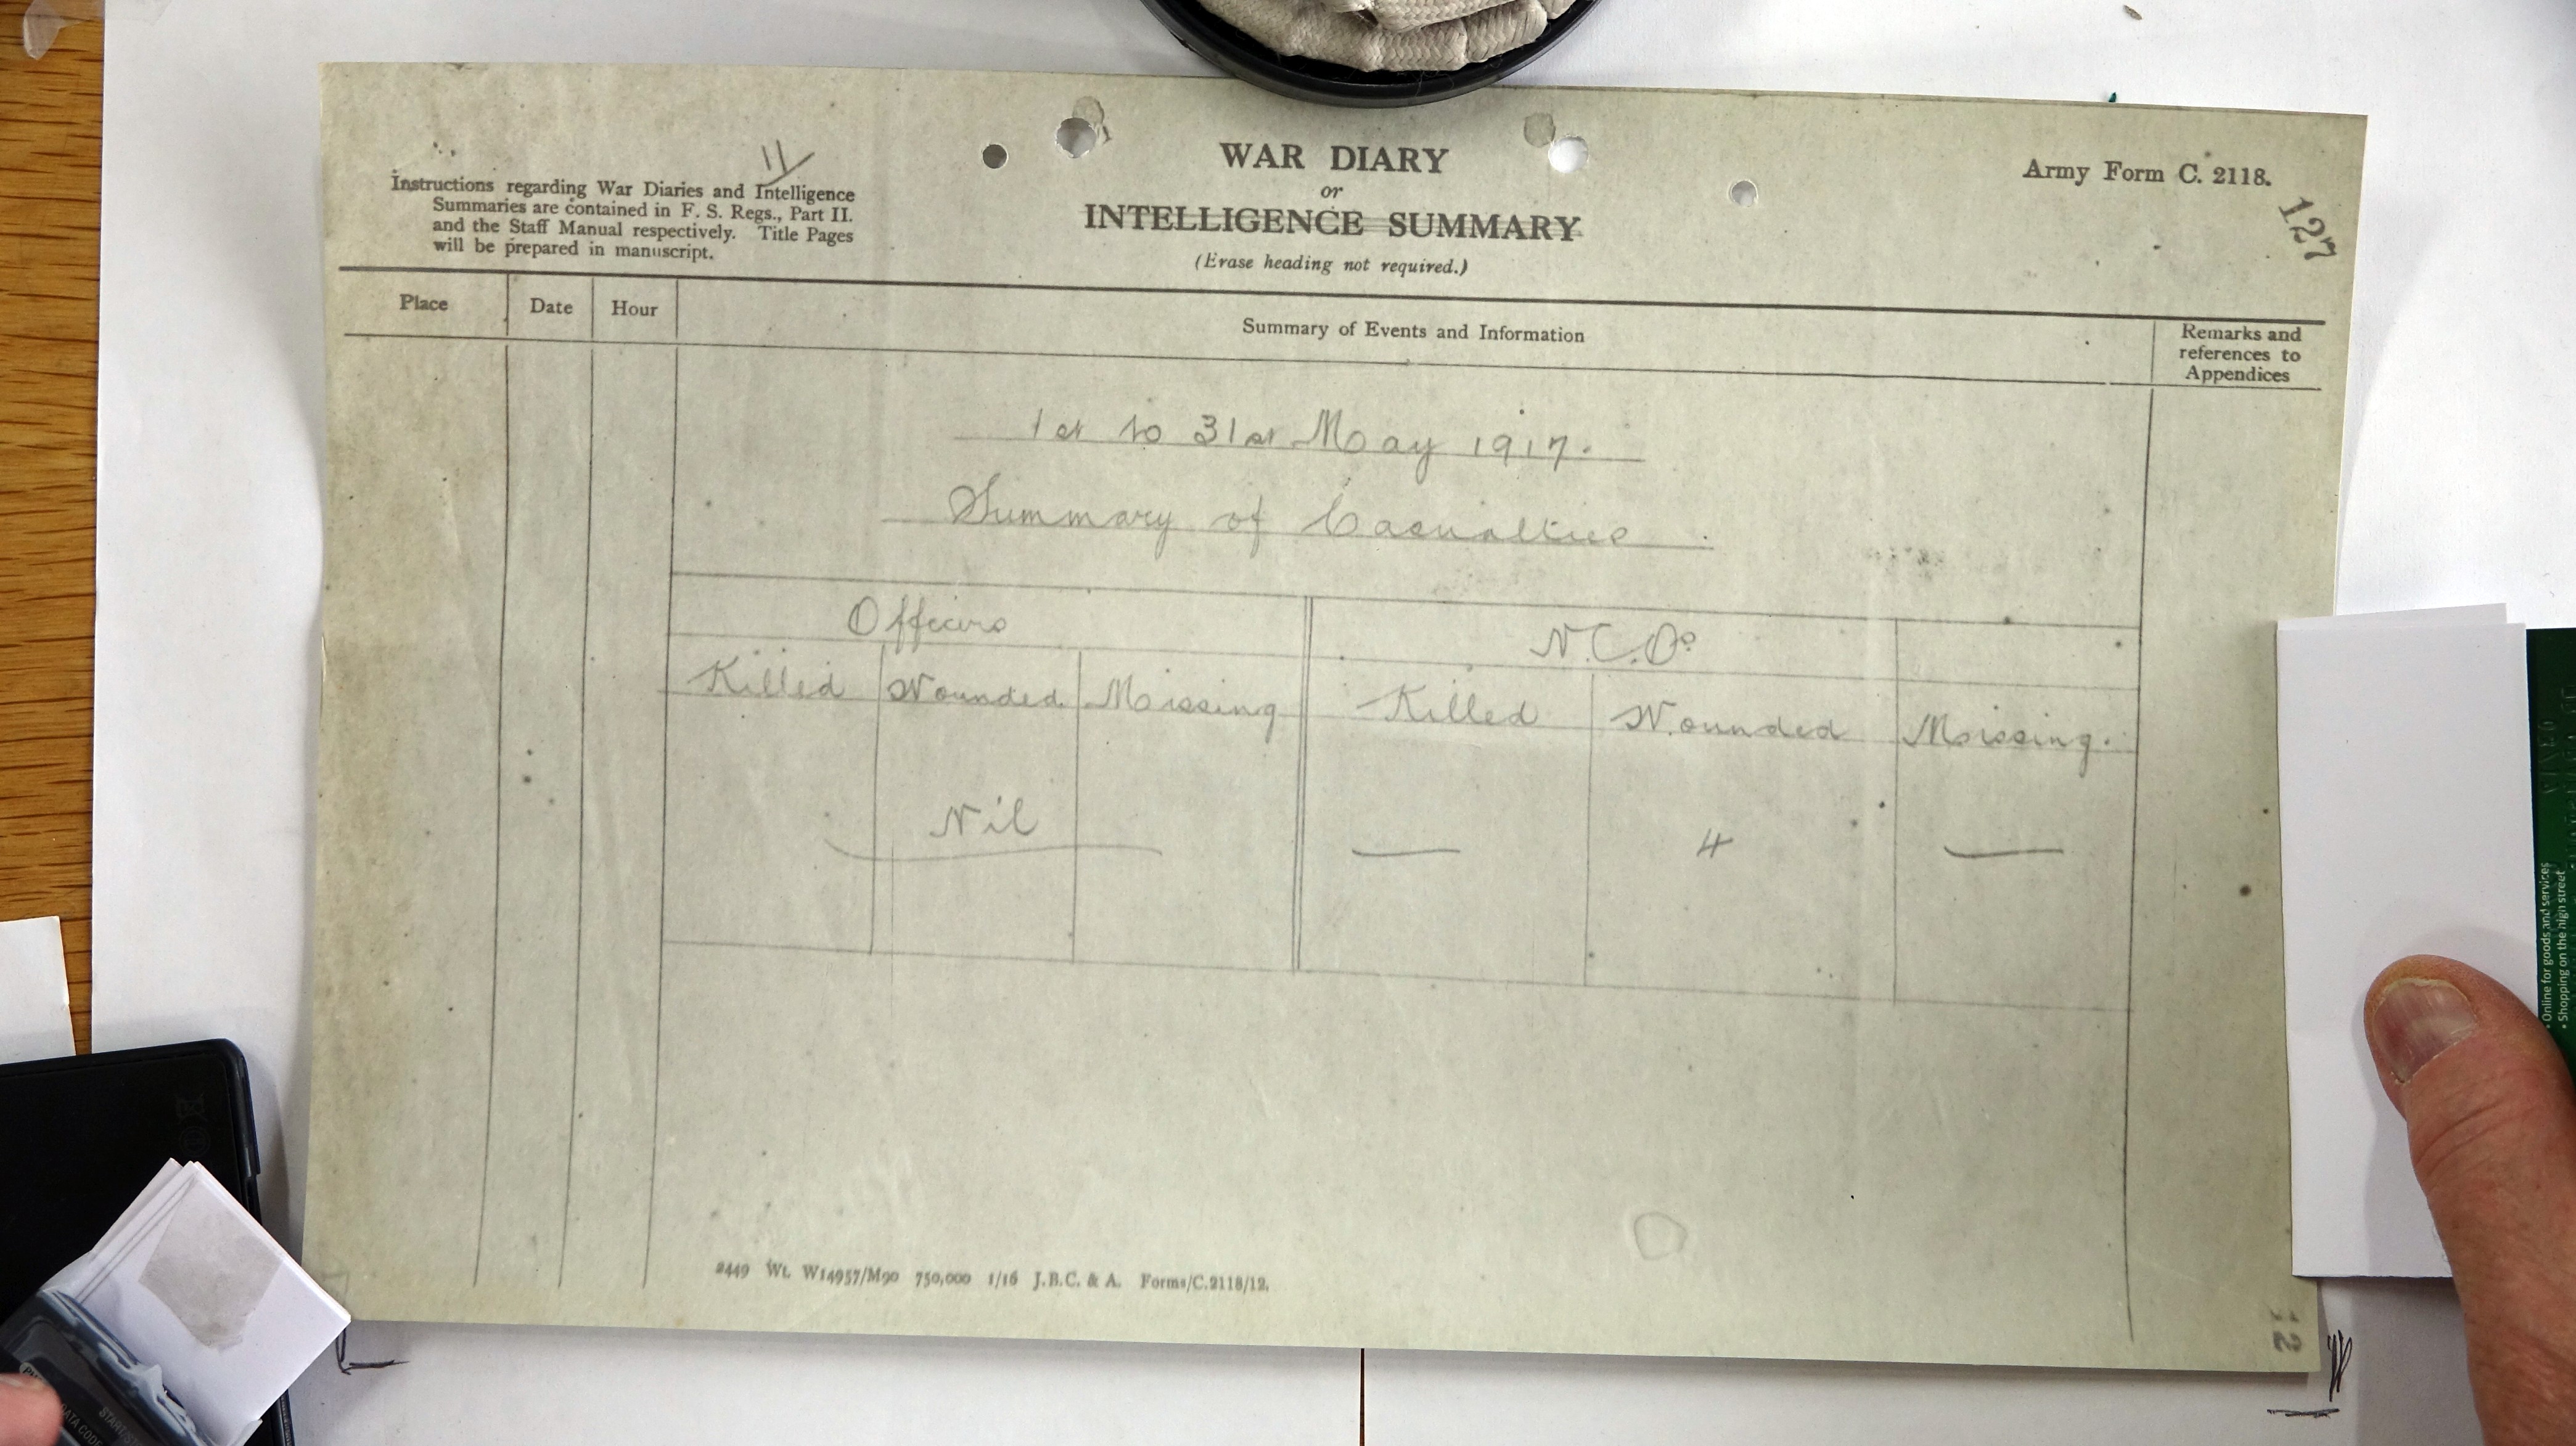 11
Instructions regarding War Diaries and Intelligence
Summaries are contained in F. S. Regs., Part II.
and the Staff Manual respectively. Title Pages
will be prepared in manuscript.
WAR DIARY
or
INTELLIGENCE SUMMARY
(Erase heading not required.)
Army Form C. 2118.
127
Place
Date
Hour
Summary of Events and Information
Remarks and
references to
Appendices
1st to 31st May 1917.
Summary of Casualties.
Officers
N.C.Os
Killed Wounded Missing Killed Wounded Missing.
Nil — 4 —
2449 Wt. W14957/M90 750,000 1/16 J.B.C. & A. Forms/C.2118/12.
• Online for goods and services
• Shopping on the high street